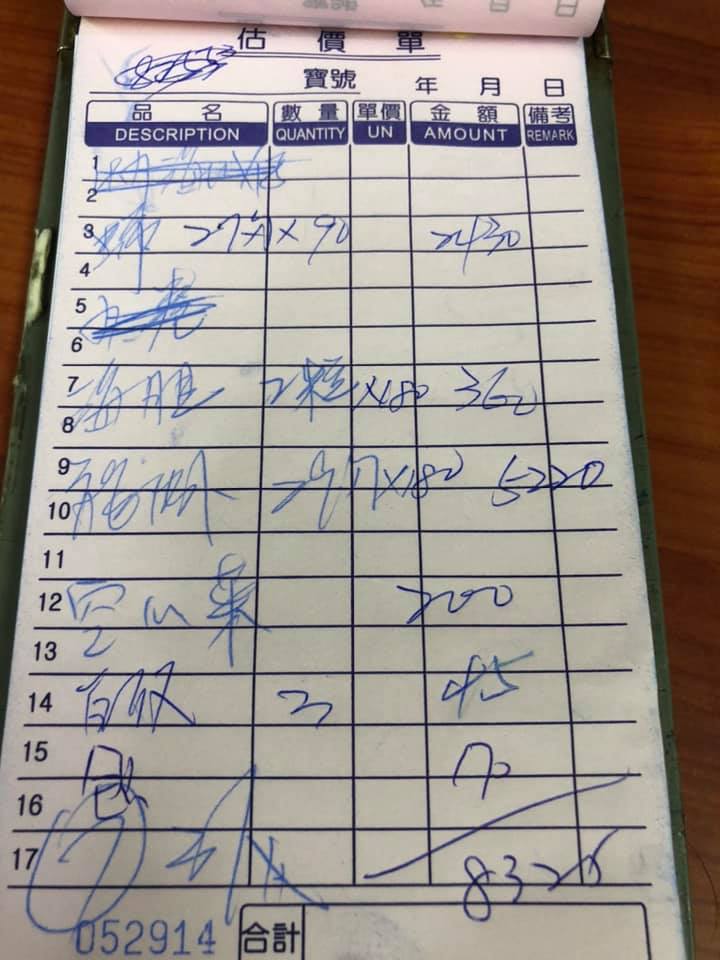 估價單
寶號 年 月 日
品名 數量 單價 金額 備考
DESCRIPTION QUANTITY UN AMOUNT REMARK
1
2
3 27两×90 2430
4
5
6
7 海胆 2粒 ×180 360
8
9 龍蝦 29两×180 5220
10
11
12 空心菜 200
13
14 白飯 3 45
15 70
16
17 8325
052914 合計